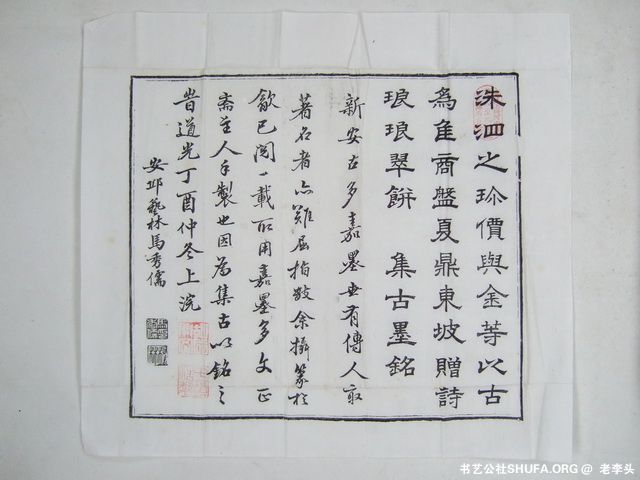 洙泗之珎價與金等以古
為隹商盤夏鼎東坡贈詩
琅琅翠餅 集古墨銘
新安古多嘉墨世有傳人最
著名者亦難屈指数余攝篆於
歙已閱一載所用嘉墨多文正
齋主人手製也因為集古以銘之
旹道光丁酉仲冬上浣
安邱藝林馬秀儒
书艺公社SHUFA.ORG @ 老李头